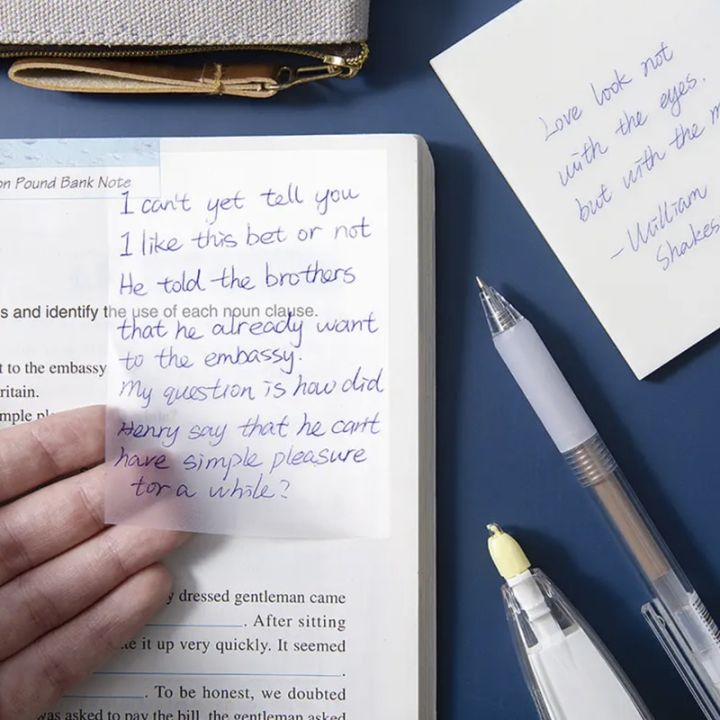 on Pound Bank Note
I can't yet tell you
I like this bet or not
He told the brothers
s and identify the use of each noun clause.
that he already want
to the embassy.
t to the embassy
My question is how did
ritain.
mple
Henry say that he can't
have simple pleasure
for a while?
dressed gentleman came
. After sitting
it up very quickly. It seemed
.
. To be honest, we doubted
was asked to pay the bill, the gentleman asked
Love look not
with the eyes.
but with the
-William
Shakes